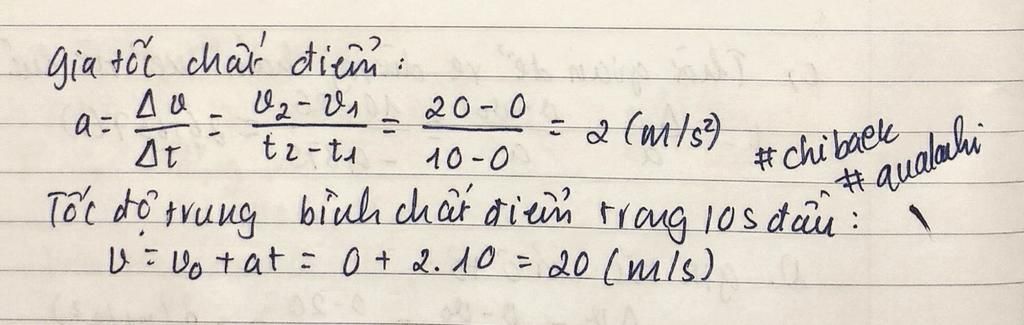 Gia tốc chất điểm:
a = Δv/Δt = v₂ - v₁/t₂ - t₁ = 20 - 0/10 - 0 = 2 (m/s²)
#chibaek
#qualachi
Tốc độ trung bình chất điểm trong 10s đầu:
v = v₀ + at = 0 + 2.10 = 20 (m/s)